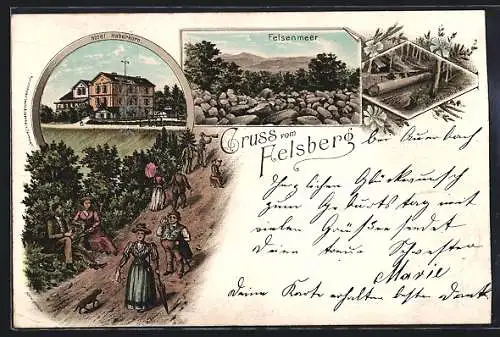 Hôtel Haberkorn
Felsenmeer
Gruss vom
Felsberg
bei Auerbach
Herzlichen Glückwunsch
zum Geburtstag mit
vielen Grüßen sendet
Deine treue Schwester
Marie
Deine Karte erhalten besten Dank